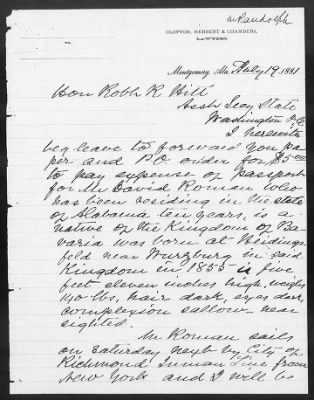 W Randolph
CLOPTON, HERBERT & CHAMBERS,
LAWYERS.
Montgomery, Ala. July 19, 1881
Hon Robt R Hitt
Asst Secy State
Washington D.C.
I herewith
beg leave to forward you pa
per and P.O. order for $5.00
to pay expense of passport
for Mr David Roman who
has been residing in the state
of Alabama ten years, is a
native of the Kingdom of Ba
varia was born at Heidings
feld near Wurzburg in said
Kingdom in 1855 is five
feet eleven inches high, weighs
140 lbs, hair dark, eyes dark,
complexion sallow near
sighted.
Mr Roman sails
on Saturday next by City of
Richmond Inman Line from
New York and I will be